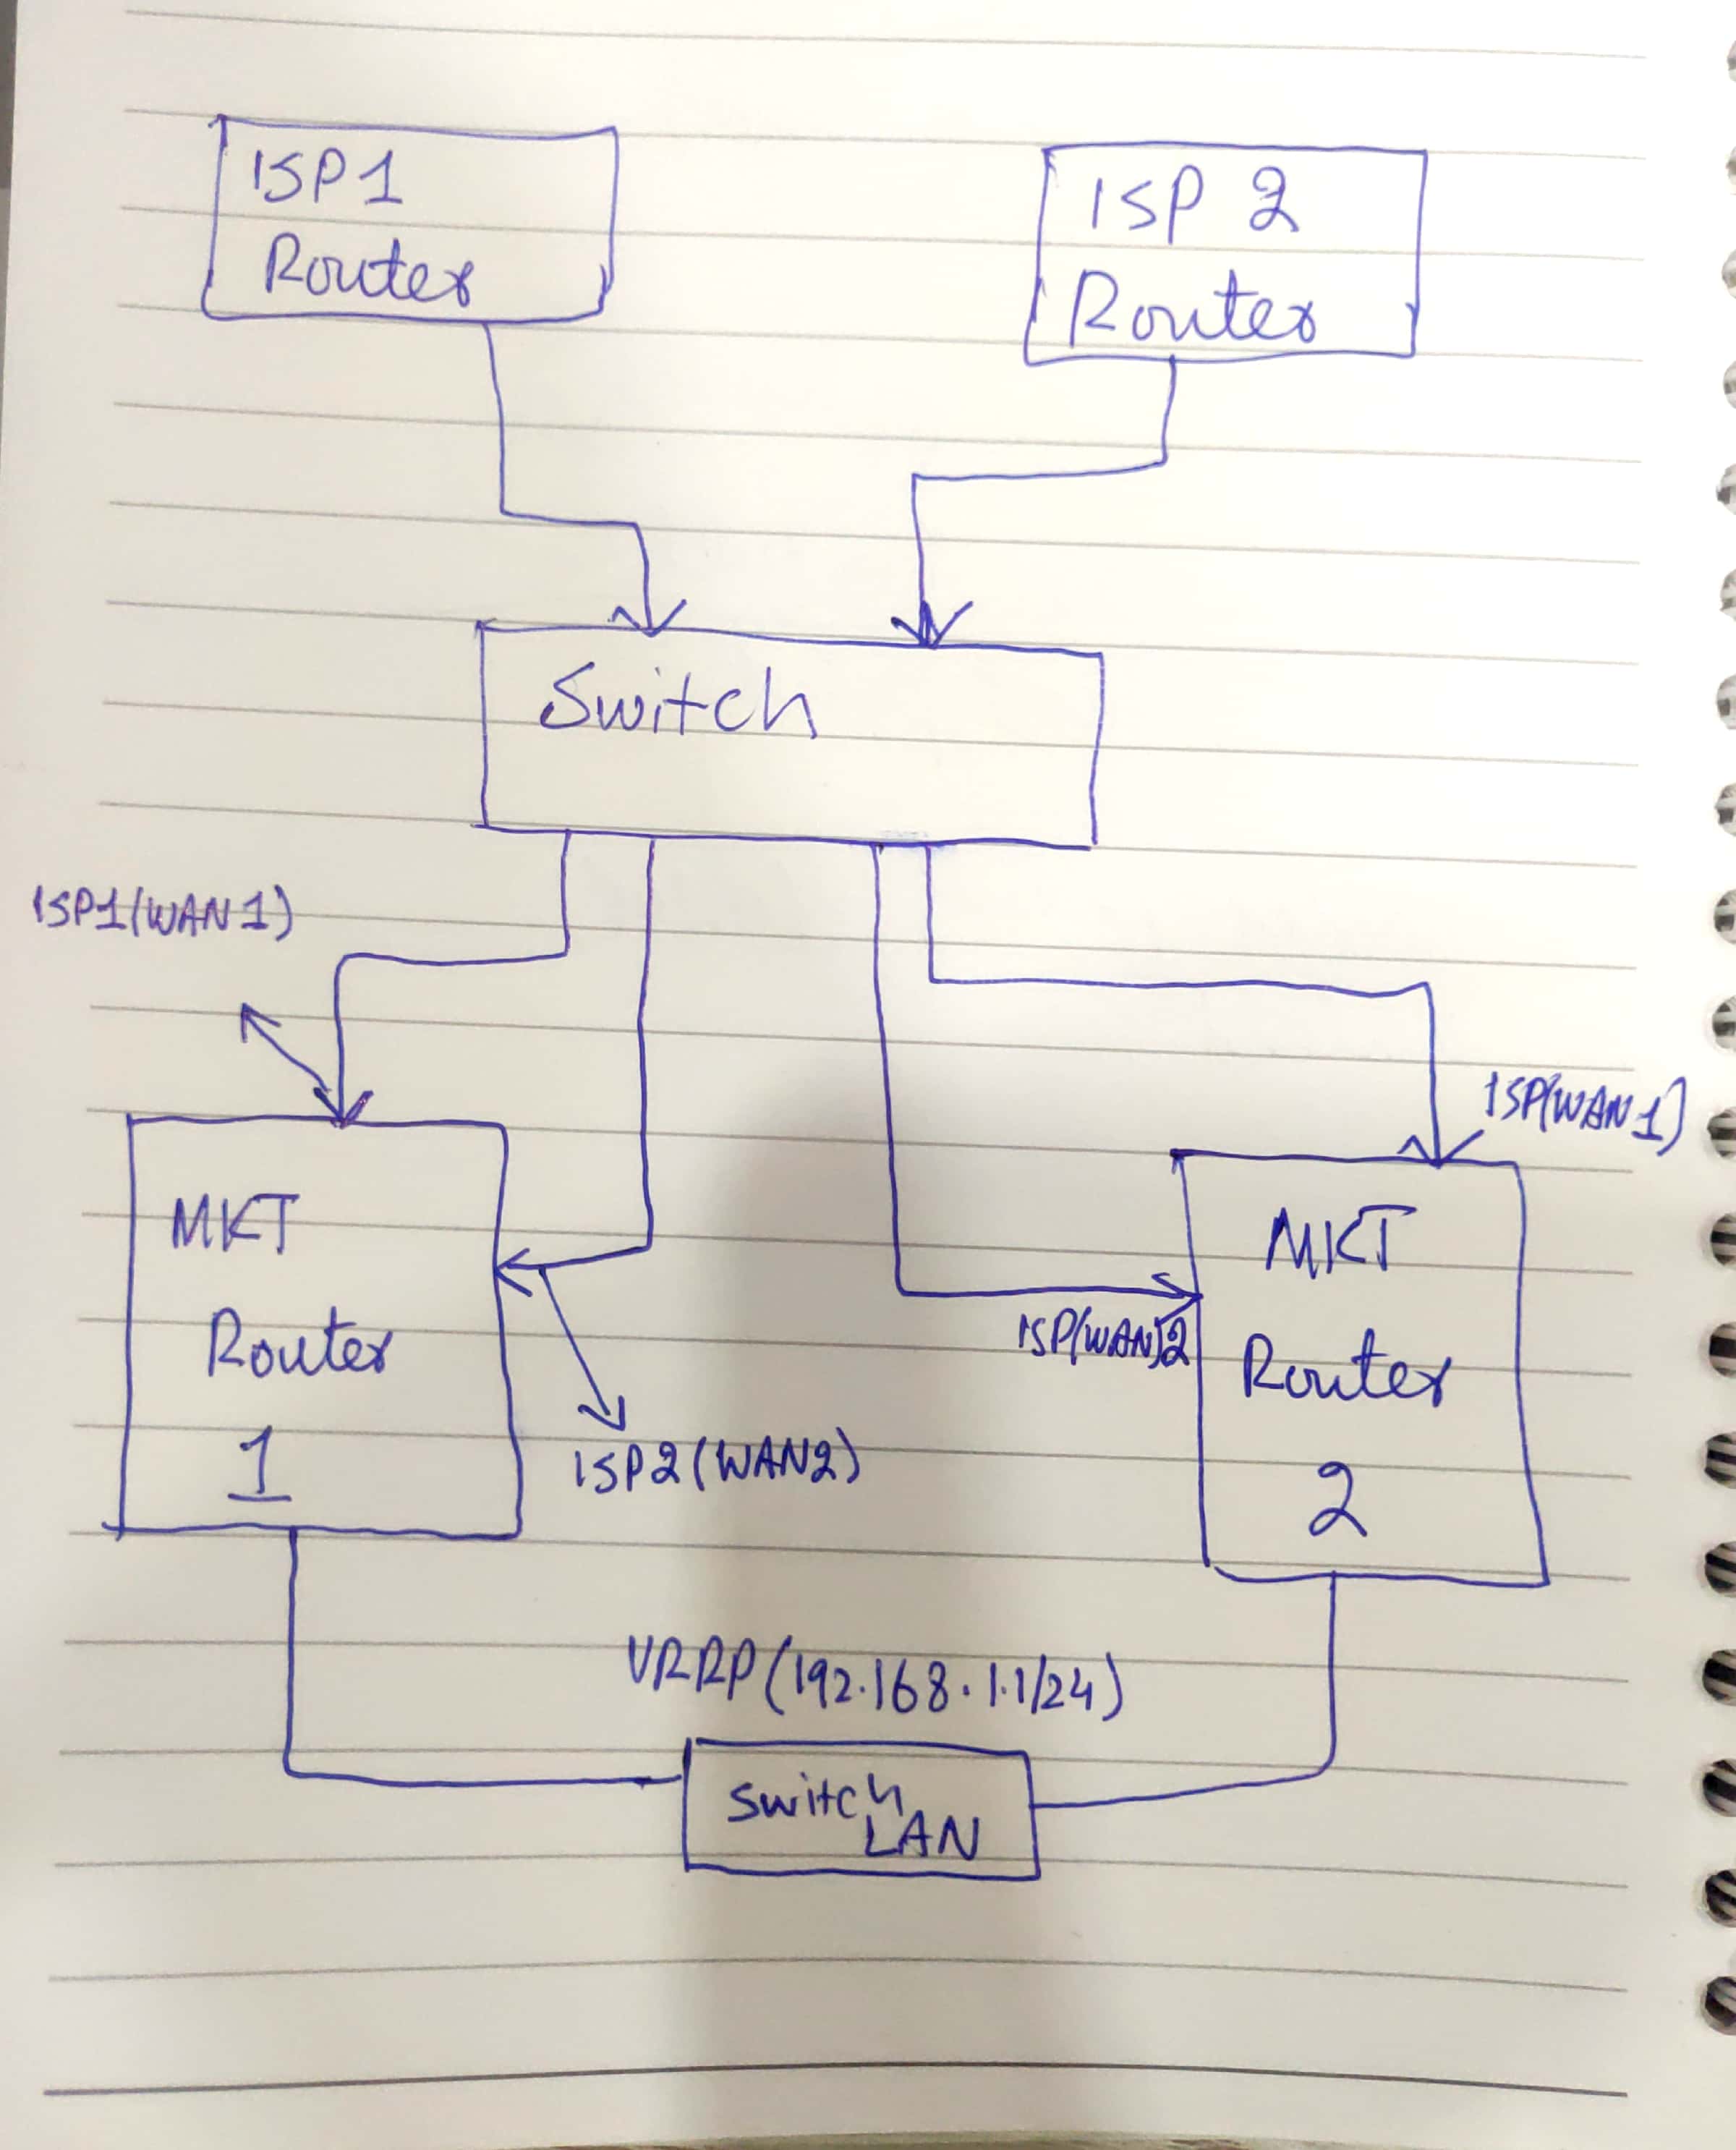 ISP1
Router
ISP 2
Router
Switch
ISP1(WAN1)
ISP(WAN1)
MKT
Router
1
ISP2(WAN2)
ISP(WAN)2
MKT
Router
2
VRRP(192.168.1.1/24)
Switch
LAN